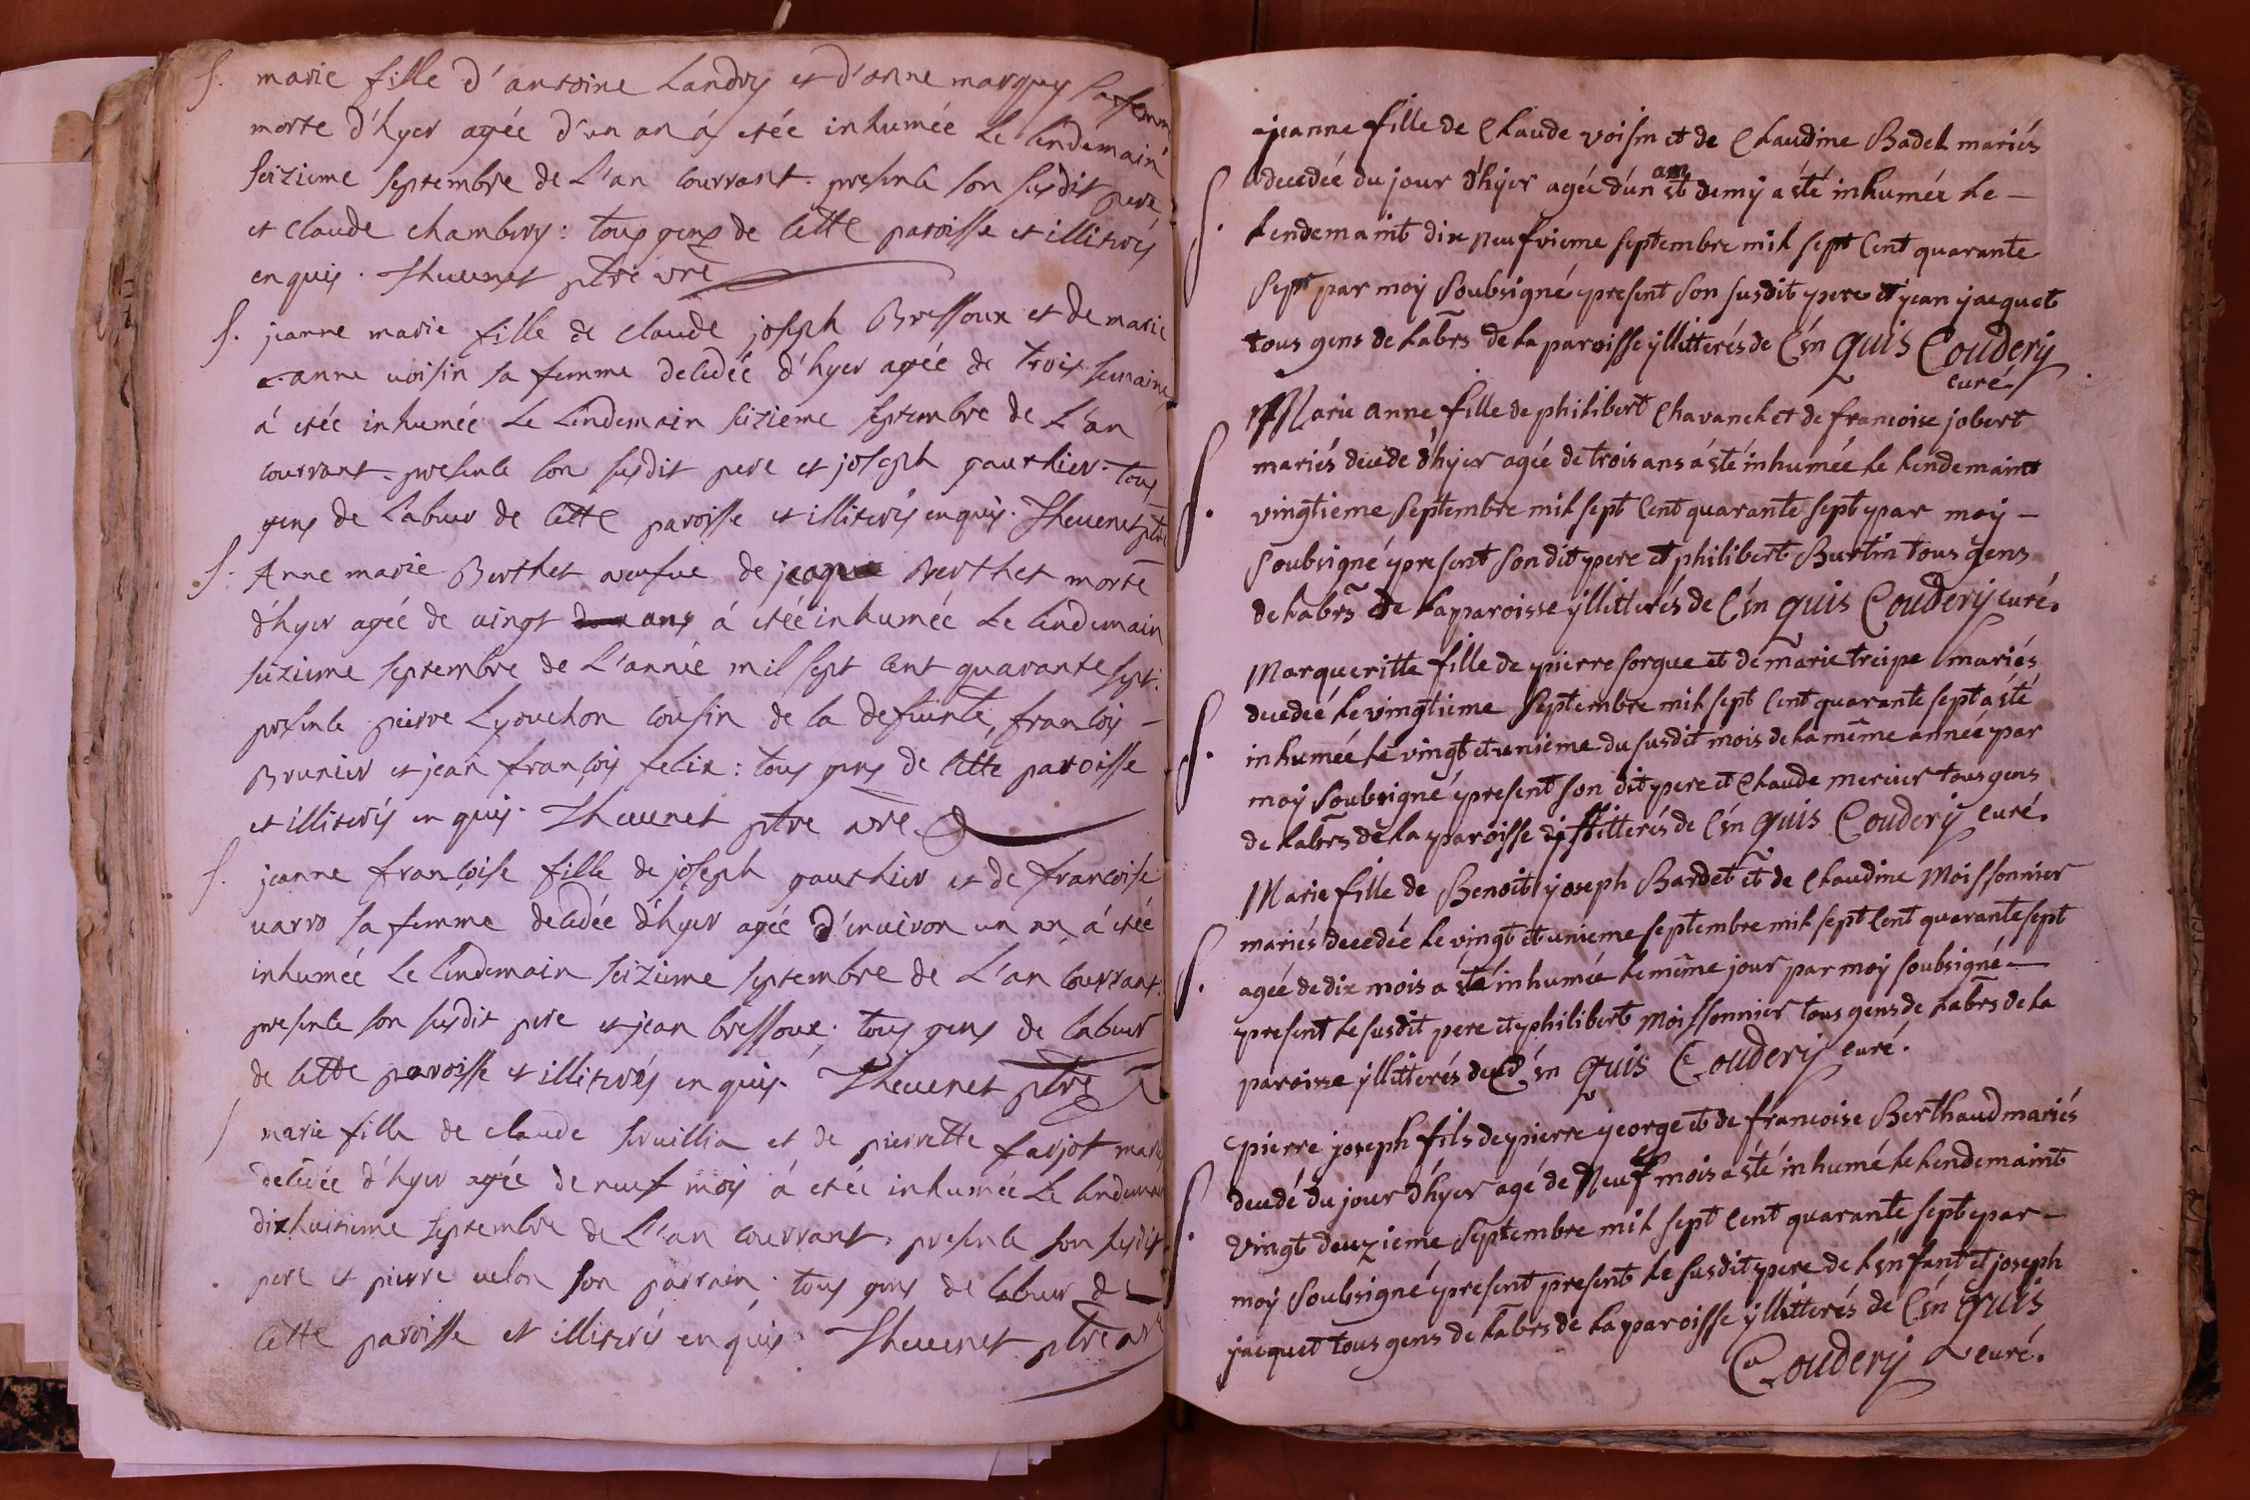 S. marie fille d'antoine Landry et d'anne marquis sa femme
morte d'hyer agée d'un an á etée inhumée Le lendemain
seizieme septembre de L'an courrant. presents son susdit pere
et claude chambery: tous gens de cette paroisse et illiterés
enquis. Theuenet ptre vre
S. jeanne marie fille de claude joseph Bressoux et de marie
anne uoisin sa femme decedée d'hyer agée de trois semaines
á etée inhumée Le lendemain seizieme septembre de L'an
courrant. presents son susdit pere et joseph gauthier. tous
gens de Labeur de cette paroisse et illiterés enquis. Theuenet ptre
S. Anne marie Berthet veufue de jacque Berthet morte
d'hyer agée de uingt ans á etée inhumée Le lendemain
seizieme septembre de L'année mil sept cent quarante sept.
presents pierre Lyouchon cousin de la defuinte, françois -
Brunier et jean françois felix: tous gens de cette paroisse
et illiterés enquis. Theuenet ptre vre
S. jeanne françoise fille de joseph gauthier et de francoise
uarro sa femme decedée d'hyer agée d'enuiron un an á etée
inhumée Le lendemain seizieme septembre de L'an courrant:
presents son susdit pere et jean bressoux: tous gens de labeur
de cette paroisse et illiterés enquis. Theuenet ptre
S marie fille de claude et de pierrette farjot mariés
decedée d'hyer agée de neuf mois á etée inhumée Le lendemain
dixhuitieme septembre de L'an courrant. presents son susdit
pere et pierre uelon son parrain. tous gens de labeur de
cette paroisse et illiterés enquis. Theuenet ptre vre
jeanne fille de Claude voisin et de Claudine Badel mariés
decedée du jour d'hÿer agée d'un an et demÿ a été inhumée le -
S. lendemaint dix neufvieme septembre mil sept Cent quarante
sept par moÿ soubsigné present son susdit pere et jean jacquet
tous gens de labrs de la paroisse ÿllitterés de Cén quis Couderÿ
curé
Marie anne fille de philibert Chavanel et de francoise jobert
S. mariés decedé d'hÿer agée de trois ans á été inhumée le lendemaint
vingtieme septembre mil sept Cent quarante sept par moÿ -
soubsigné present son dit pere et philibert Burtin tous gens
de labrs de la paroisse ÿllitterés de Cén quis Couderÿ curé.
Marqueritte fille de pierre sorgue et de marie treipe mariés
S. decedée le vingtieme septembre mil sept Cent quarante sept á été
inhumée le vingt et unieme du susdit mois de la même année par
moÿ soubsigné present son dit pere et Claude mercier tous gens
de labrs de la paroisse ÿllitterés de Cén quis Couderÿ curé.
Marie fille de Benoit joseph Bardet et de Claudine Moissonnier
S. mariés decedée le vingt et unieme septembre mil sept Cent quarante sept
agée de dix mois a été inhumée le même jour par moÿ soubsigné -
present le susdit pere et philibert Moissonnier tous gens de labrs de la
paroisse ÿllitterés de Cén quis Couderÿ curé.
pierre joseph fils de pierre george et de francoise Berthaud mariés
S. decedé du jour d'hÿer agé de Neuf mois a été inhumé le lendemaint
vingt deuzieme septembre mil sept Cent quarante sept par -
moÿ soubsigné present present le susdit pere de lénfant et joseph
jacquet tous gens de labrs de la paroisse ÿllitterés de Cén quis
Couderÿ curé.